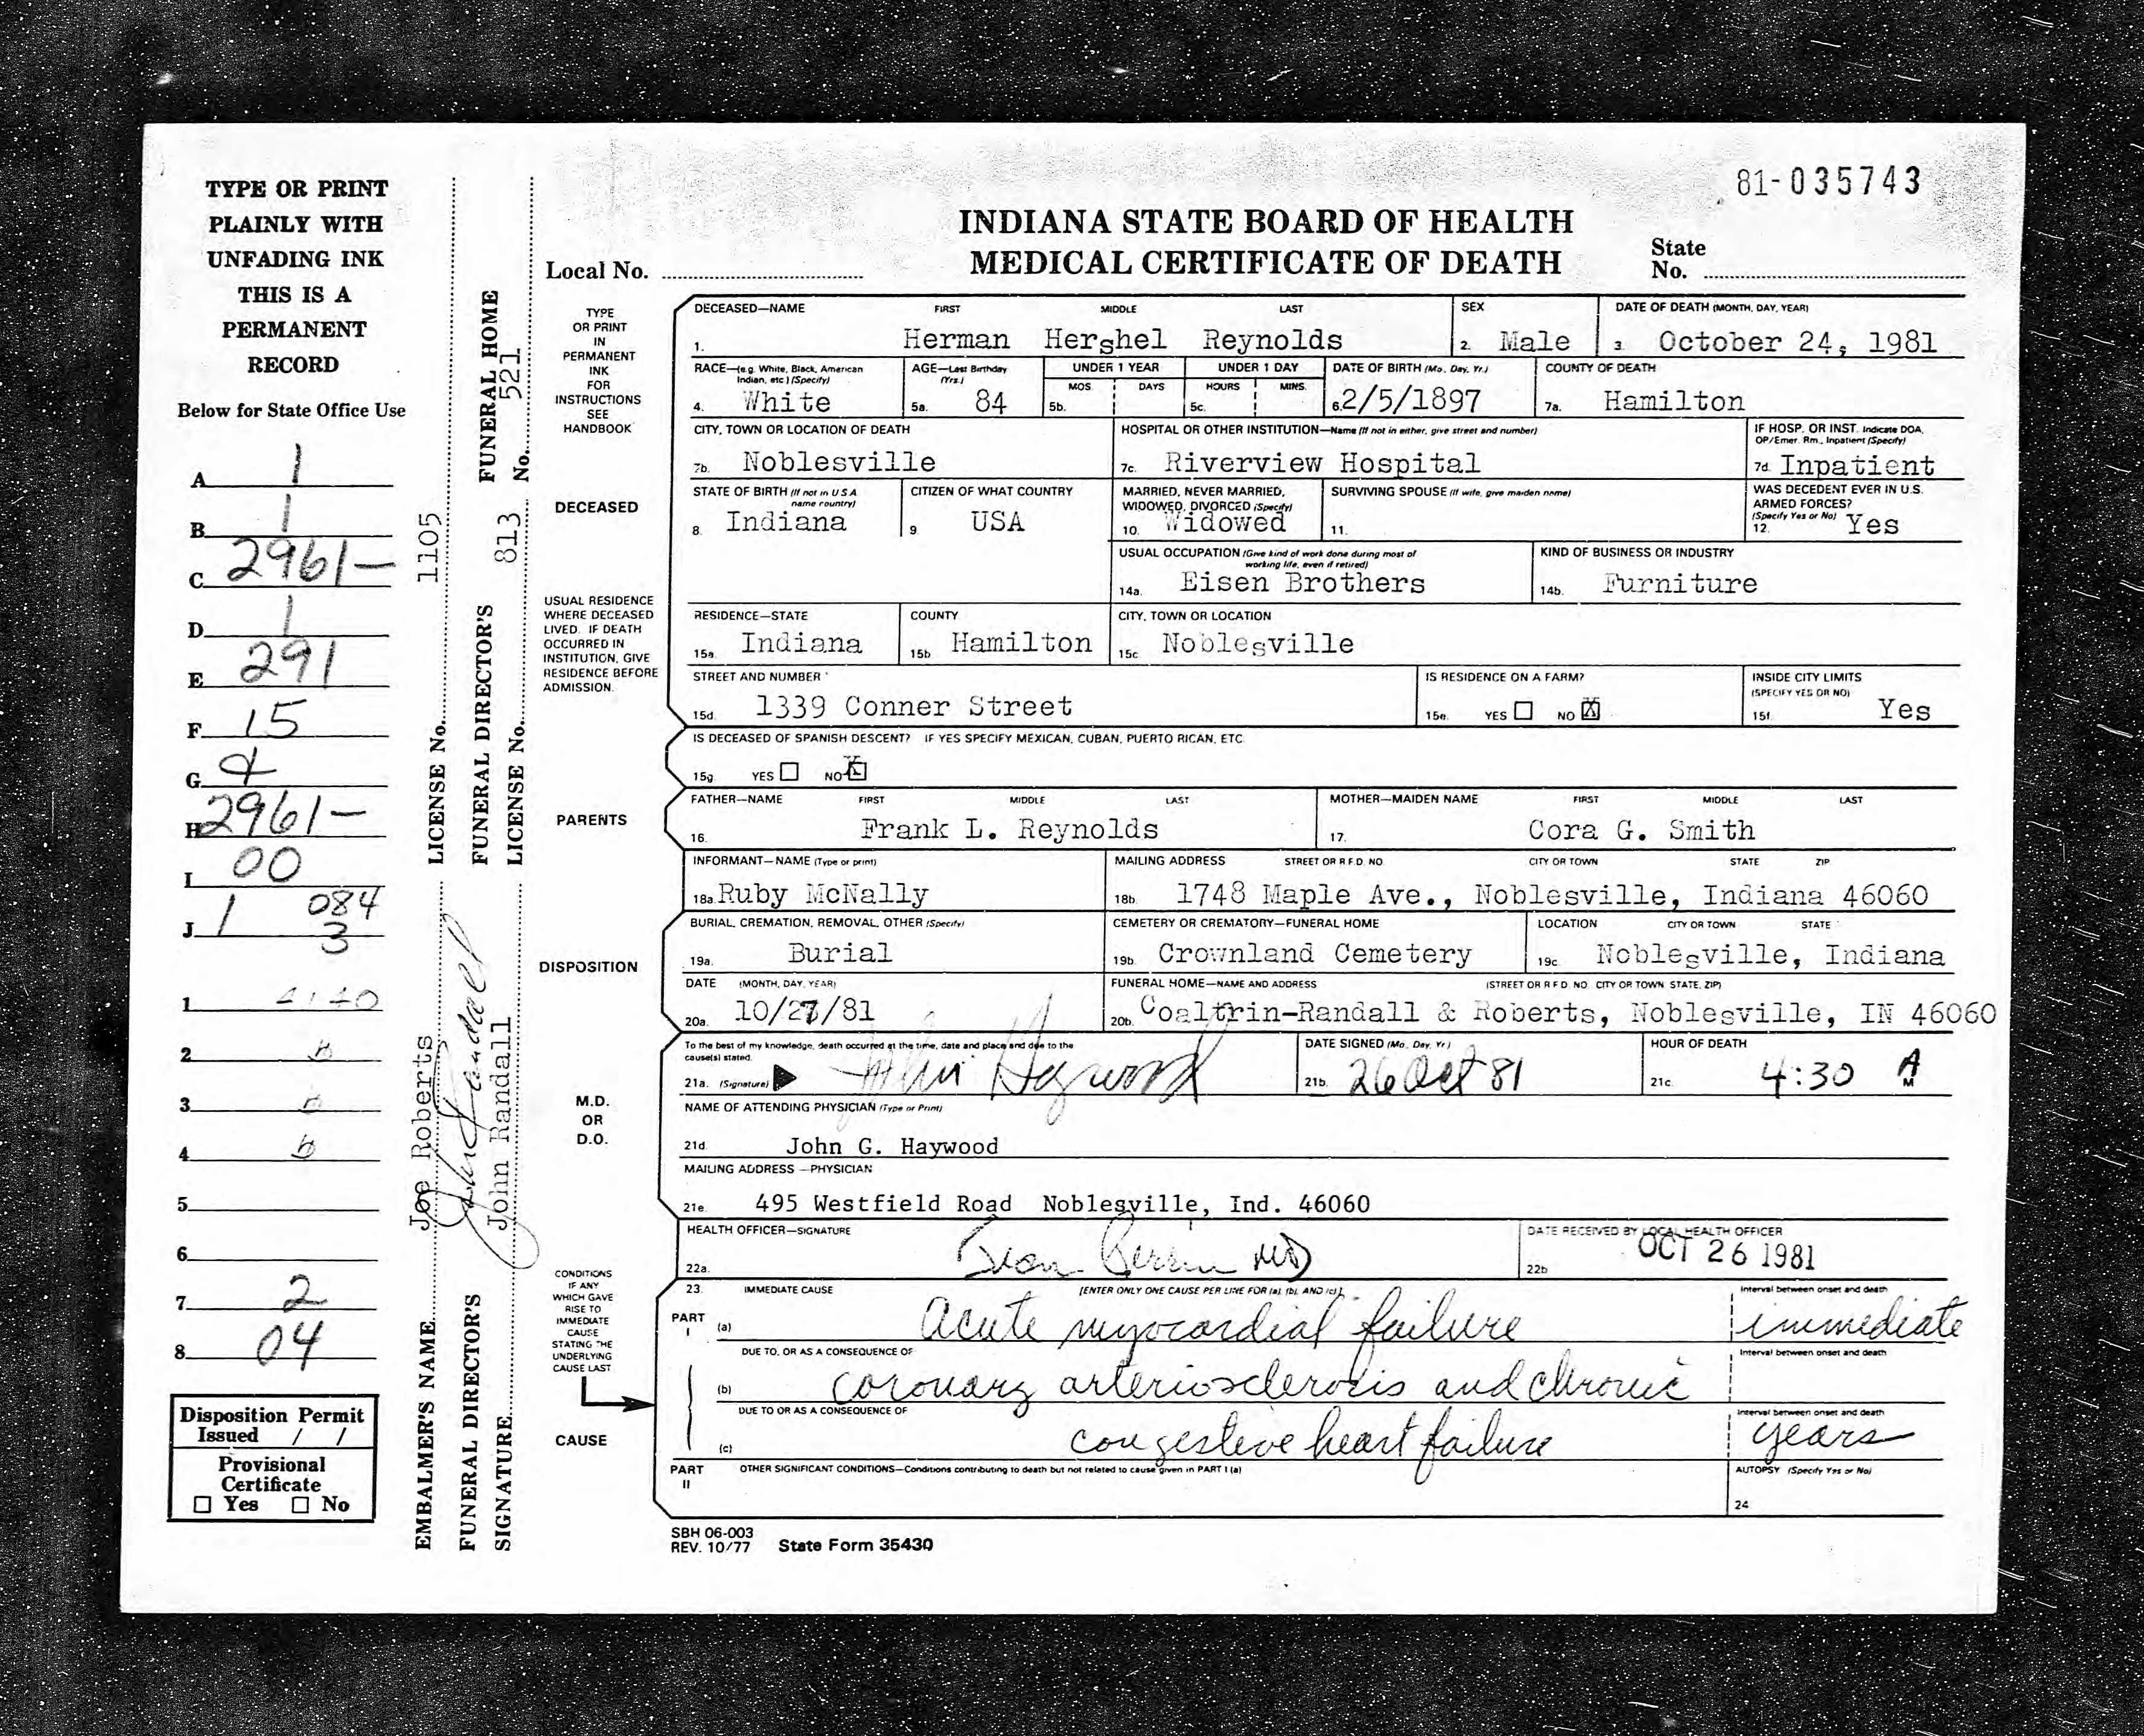 81-035743
INDIANA STATE BOARD OF HEALTH
MEDICAL CERTIFICATE OF DEATH
Local No.
State
No.
TYPE OR PRINT
PLAINLY WITH
UNFADING INK
THIS IS A
PERMANENT
RECORD
Below for State Office Use
A 1
B 1
C 2961-
D 1
E 291
F 15
G
H 2961-
I 00
J 1 084
3
1
2
3
4
5
6
7 2
8 04
Disposition Permit
Issued / /
Provisional
Certificate
☐ Yes ☐ No
EMBALMER'S NAME Joe Roberts LICENSE No. 1105
FUNERAL DIRECTOR'S SIGNATURE John Randall
John Randall
FUNERAL DIRECTOR'S LICENSE No. 813
FUNERAL HOME No. 521
TYPE
OR PRINT
IN
PERMANENT
INK
FOR
INSTRUCTIONS
SEE
HANDBOOK
DECEASED
USUAL RESIDENCE
WHERE DECEASED
LIVED. IF DEATH
OCCURRED IN
INSTITUTION, GIVE
RESIDENCE BEFORE
ADMISSION.
PARENTS
DISPOSITION
M.D.
OR
D.O.
CONDITIONS
IF ANY
WHICH GAVE
RISE TO
IMMEDIATE
CAUSE
STATING THE
UNDERLYING
CAUSE LAST
CAUSE
DECEASED—NAME FIRST MIDDLE LAST SEX DATE OF DEATH (MONTH, DAY, YEAR)
1. Herman Hershel Reynolds 2. Male 3. October 24, 1981
RACE—(e.g. White, Black, American Indian, etc.) (Specify) AGE—Last Birthday (Yrs.) UNDER 1 YEAR UNDER 1 DAY DATE OF BIRTH (Mo., Day, Yr.) COUNTY OF DEATH
MOS. DAYS HOURS MINS.
4. White 5a. 84 5b. 5c. 6. 2/5/1897 7a. Hamilton
CITY, TOWN OR LOCATION OF DEATH HOSPITAL OR OTHER INSTITUTION—Name (If not in either, give street and number) IF HOSP. OR INST. Indicate DOA, OP/Emer. Rm., Inpatient (Specify)
7b. Noblesville 7c. Riverview Hospital 7d. Inpatient
STATE OF BIRTH (If not in U S A name country) CITIZEN OF WHAT COUNTRY MARRIED, NEVER MARRIED, WIDOWED, DIVORCED (Specify) SURVIVING SPOUSE (If wife, give maiden name) WAS DECEDENT EVER IN U.S. ARMED FORCES? (Specify Yes or No)
8. Indiana 9. USA 10. Widowed 11. 12. Yes
USUAL OCCUPATION (Give kind of work done during most of working life, even if retired) KIND OF BUSINESS OR INDUSTRY
14a. Eisen Brothers 14b. Furniture
RESIDENCE—STATE COUNTY CITY, TOWN OR LOCATION
15a. Indiana 15b. Hamilton 15c. Noblesville
STREET AND NUMBER IS RESIDENCE ON A FARM? INSIDE CITY LIMITS (SPECIFY YES OR NO)
15d. 1339 Conner Street 15e. YES ☐ NO ☒ 15f. Yes
IS DECEASED OF SPANISH DESCENT? IF YES SPECIFY MEXICAN, CUBAN, PUERTO RICAN, ETC
15g. YES ☐ NO ☒
FATHER—NAME FIRST MIDDLE LAST MOTHER—MAIDEN NAME FIRST MIDDLE LAST
16. Frank L. Reynolds 17. Cora G. Smith
INFORMANT—NAME (Type or print) MAILING ADDRESS STREET OR R.F.D. NO. CITY OR TOWN STATE ZIP
18a. Ruby McNally 18b. 1748 Maple Ave., Noblesville, Indiana 46060
BURIAL, CREMATION, REMOVAL, OTHER (Specify) CEMETERY OR CREMATORY—FUNERAL HOME LOCATION CITY OR TOWN STATE
19a. Burial 19b. Crownland Cemetery 19c. Noblesville, Indiana
DATE (MONTH, DAY, YEAR) FUNERAL HOME—NAME AND ADDRESS (STREET OR R F D NO. CITY OR TOWN STATE, ZIP)
20a. 10/27/81 20b. Coaltrin-Randall & Roberts, Noblesville, IN 46060
To the best of my knowledge, death occurred at the time, date and place and due to the cause(s) stated. DATE SIGNED (Mo., Day, Yr.) HOUR OF DEATH
21a. (Signature) John Haywood 21b. 26 Oct 81 21c. 4:30 A M
NAME OF ATTENDING PHYSICIAN (Type or Print)
21d. John G. Haywood
MAILING ADDRESS—PHYSICIAN
21e. 495 Westfield Road Noblesville, Ind. 46060
HEALTH OFFICER—SIGNATURE DATE RECEIVED BY LOCAL HEALTH OFFICER
22a. MD 22b. OCT 26 1981
23. IMMEDIATE CAUSE [ENTER ONLY ONE CAUSE PER LINE FOR (a), (b), AND (c)] Interval between onset and death
PART I (a) Acute myocardial failure immediate
DUE TO, OR AS A CONSEQUENCE OF Interval between onset and death
(b) coronary arteriosclerosis and chronic
DUE TO OR AS A CONSEQUENCE OF Interval between onset and death
(c) congestive heart failure years
PART II OTHER SIGNIFICANT CONDITIONS—Conditions contributing to death but not related to cause given in PART I (a) AUTOPSY (Specify Yes or No)
24
SBH 06-003
REV. 10/77 State Form 35430